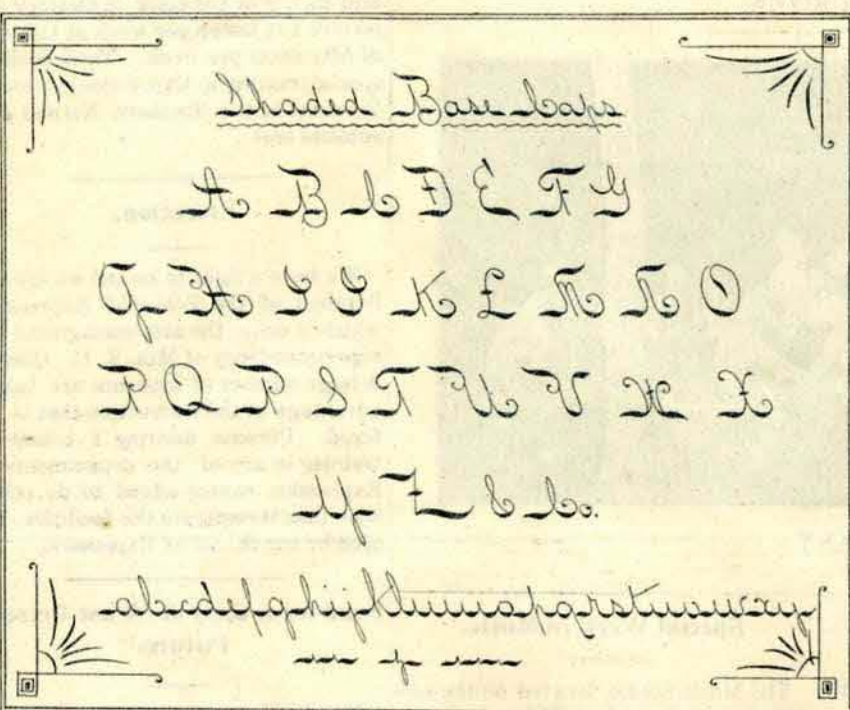 Shaded Base Caps
A B C D E F G
H I J K L M N O
R Q P S T U V W X
Y Z & Co.
abcdefghijklmnopqrstuvwxy